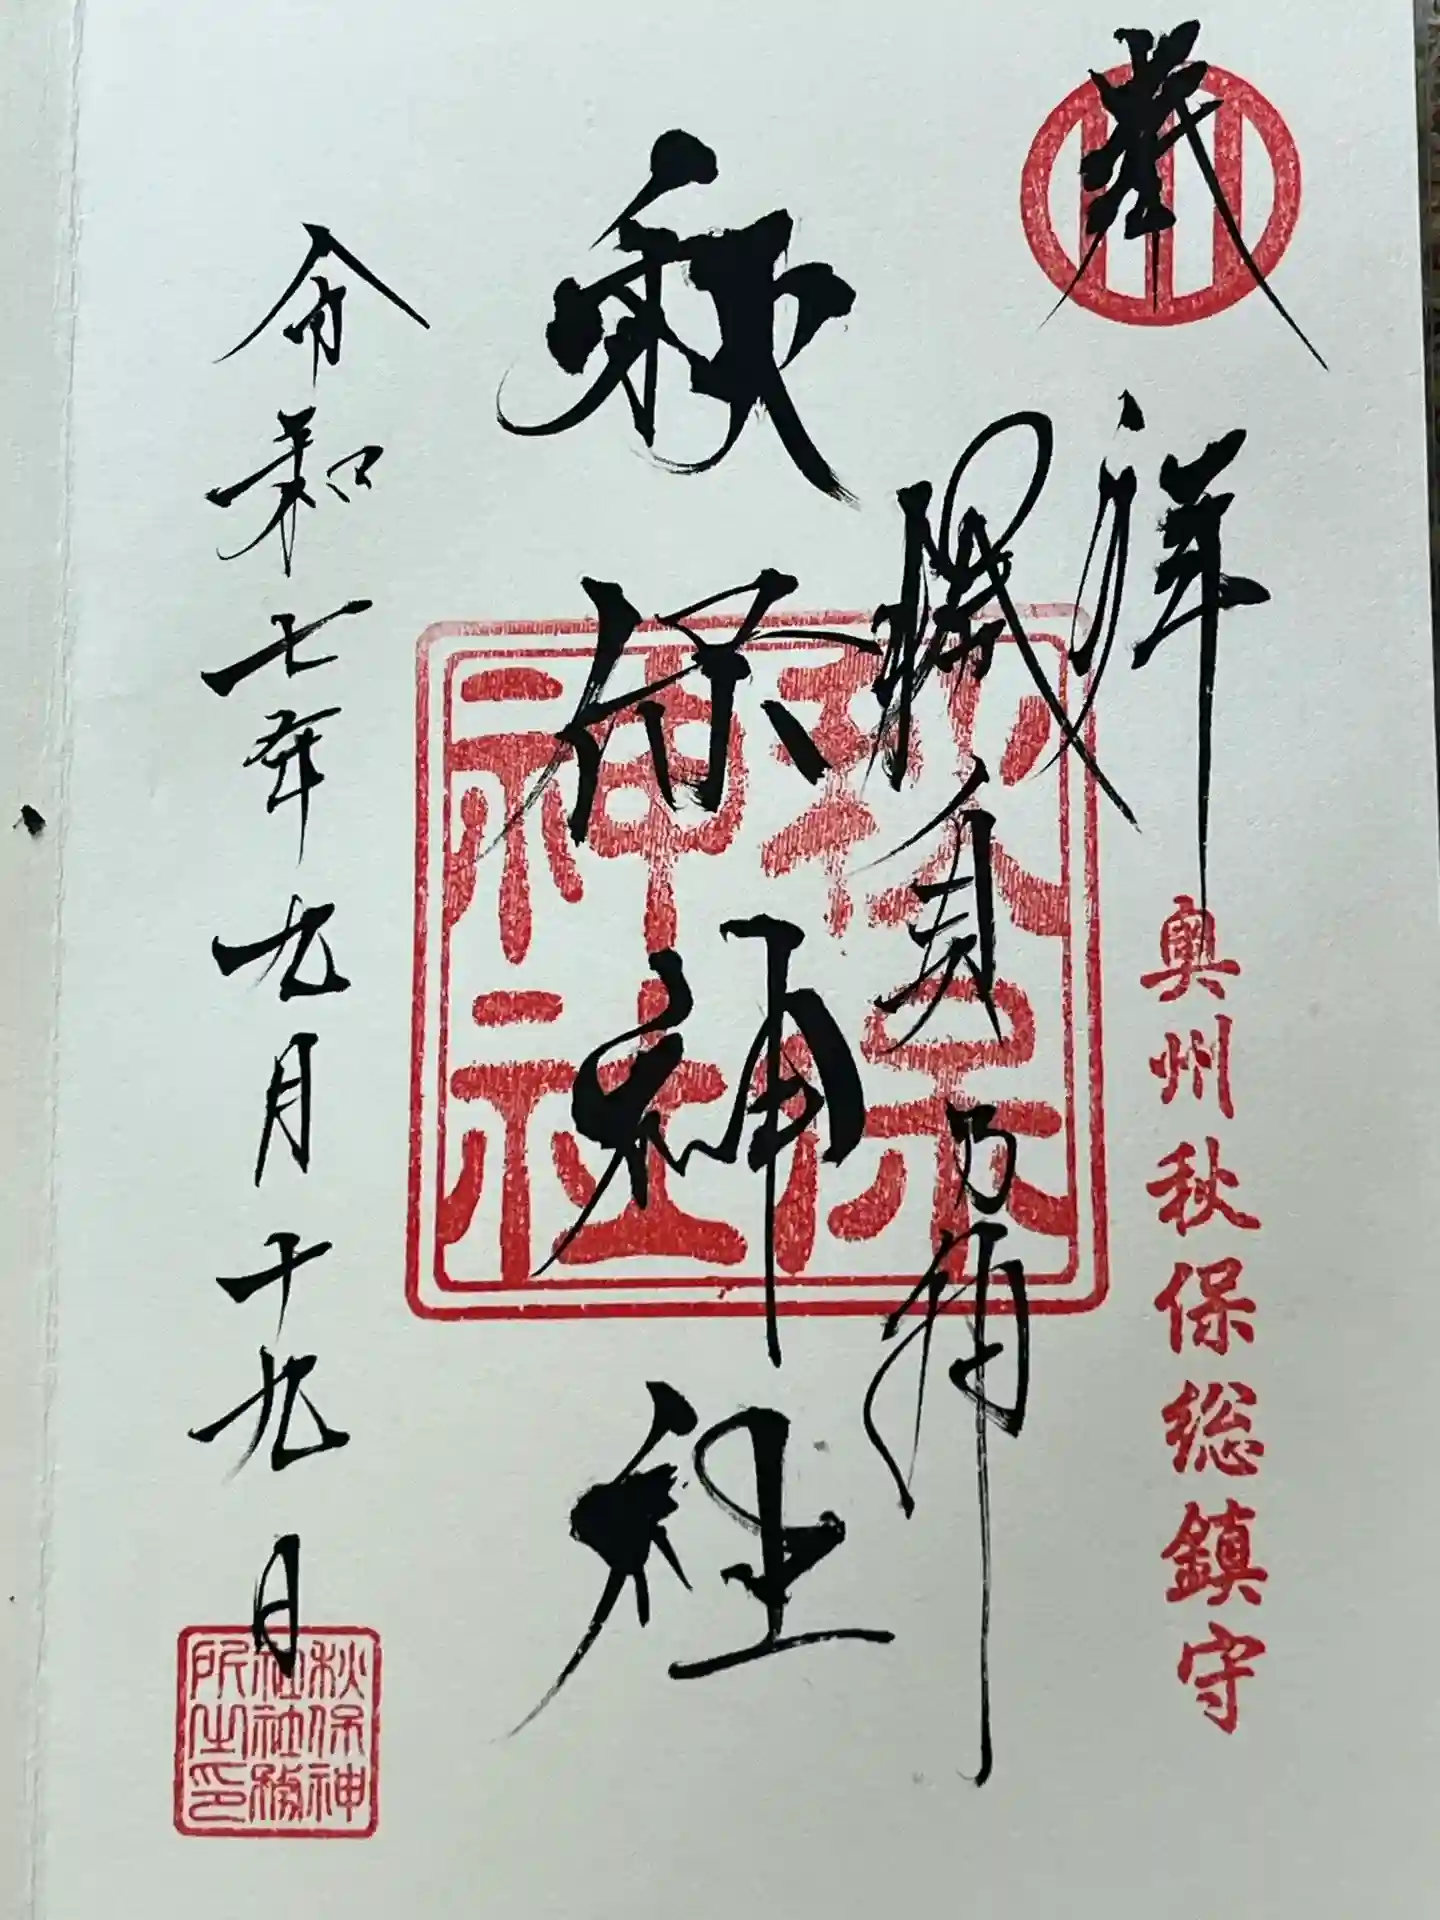 奉
拝
奥州秋保総鎮守
秋保神社
秋保神社
令和七年九月十九日
秋保神社社務所之印